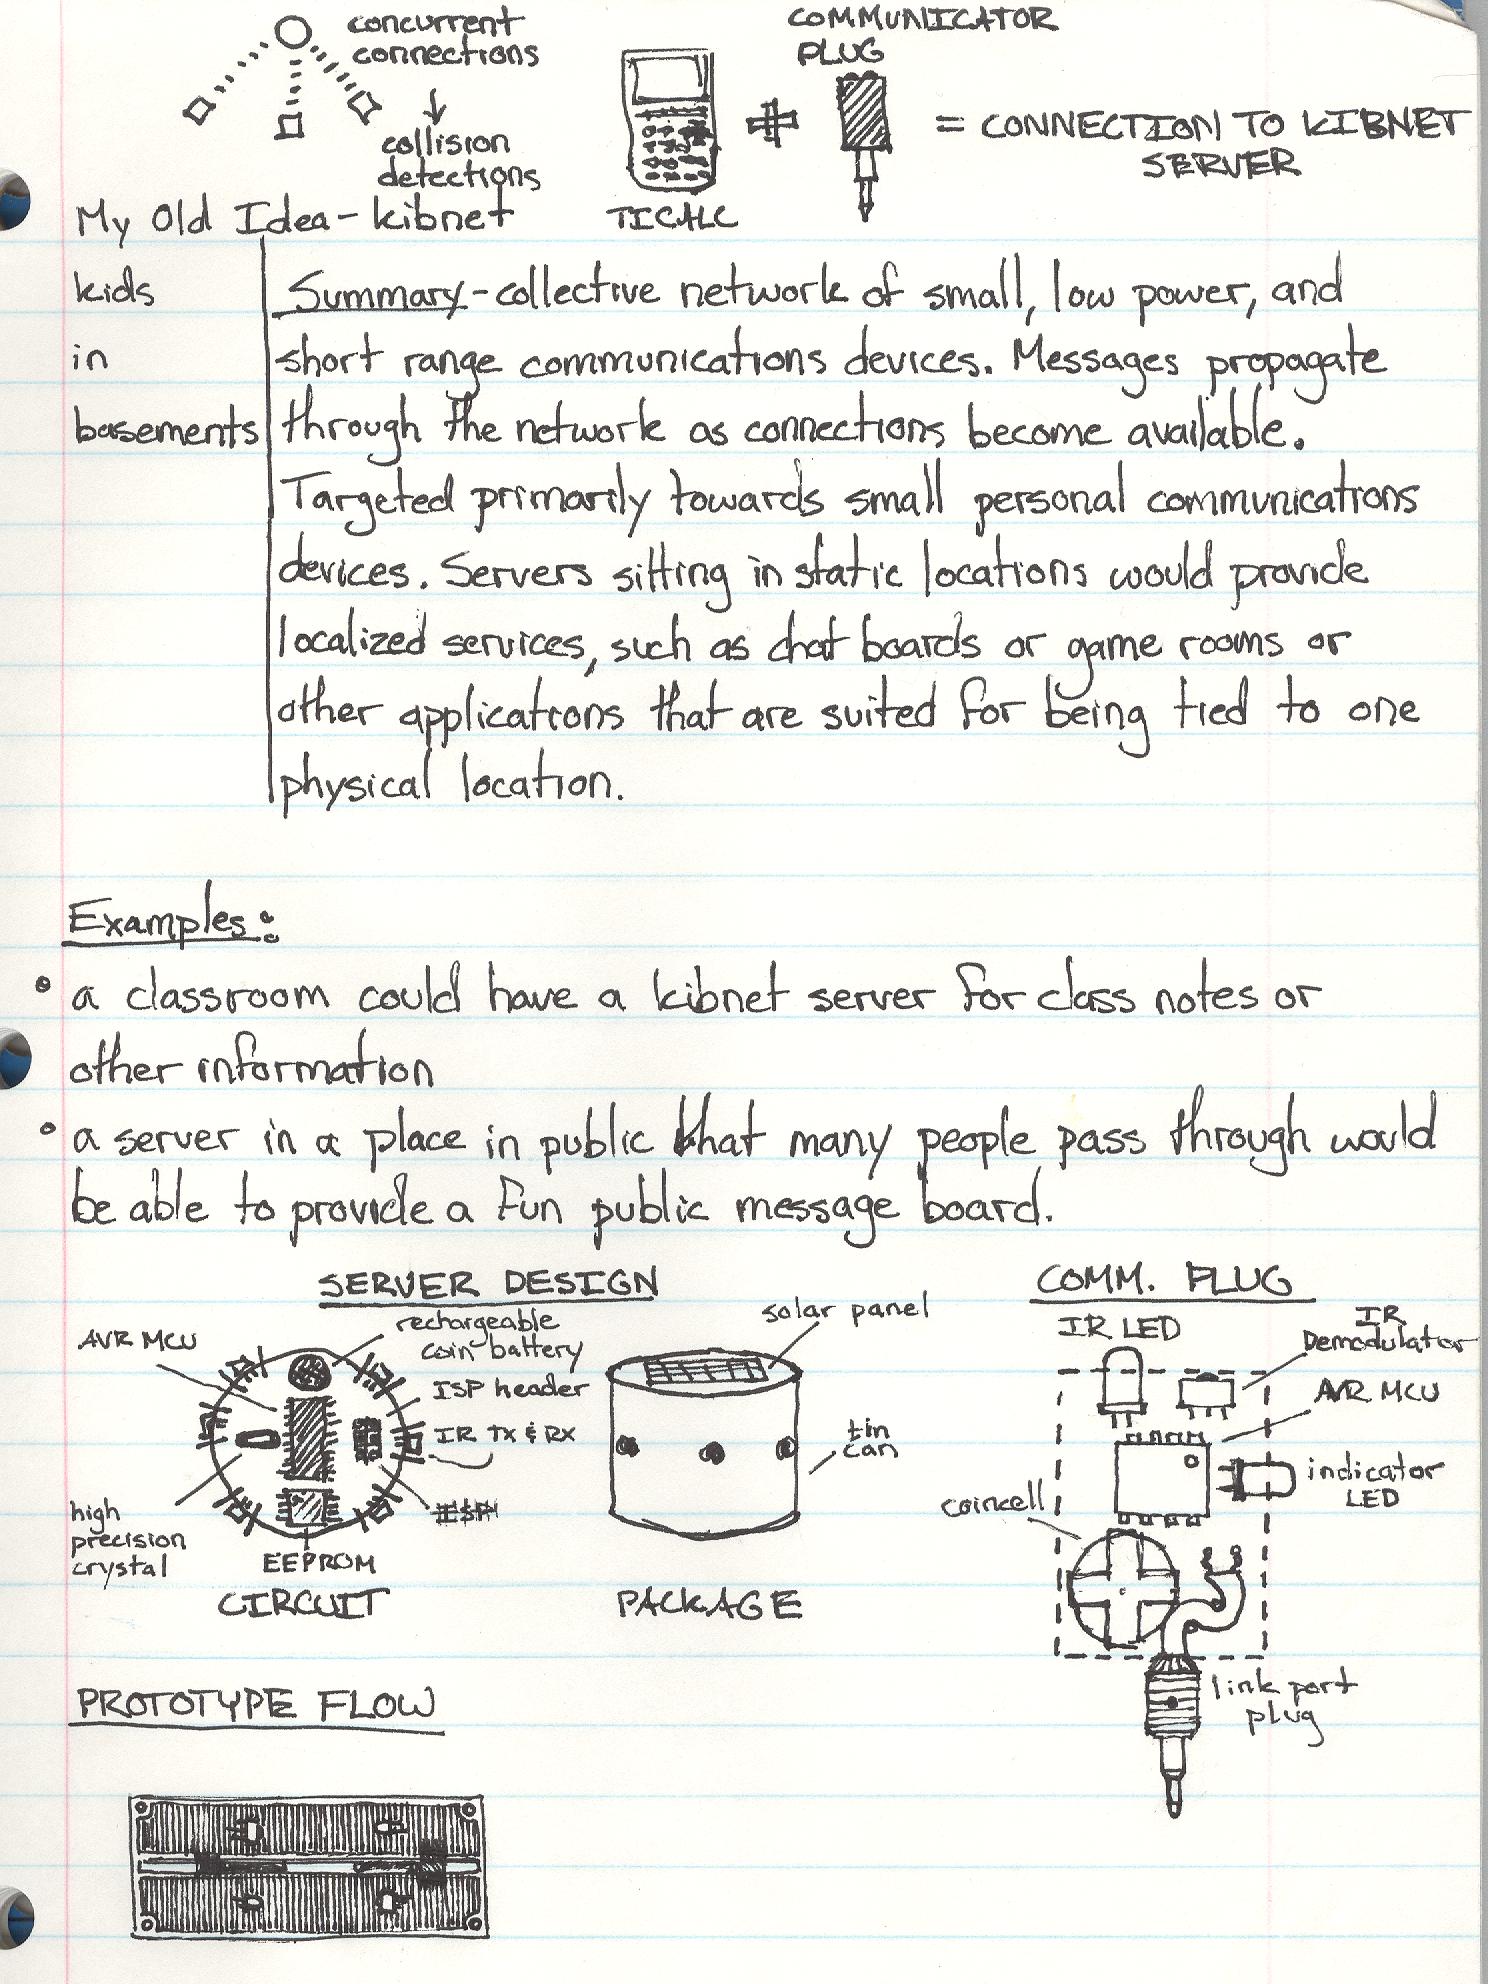 concurrent
connections
↓
collision
detections
COMMUNICATOR
PLUG
+
= CONNECTION TO KIBNET
SERVER
TI CALC
My Old Idea - kibnet
kids
in
basements
Summary - collective network of small, low power, and
short range communications devices. Messages propagate
through the network as connections become available.
Targeted primarily towards small personal communications
devices. Servers sitting in static locations would provide
localized services, such as chat boards or game rooms or
other applications that are suited for being tied to one
physical location.
Examples:
• a classroom could have a kibnet server for class notes or
other information
• a server in a place in public that many people pass through would
be able to provide a fun public message board.
SERVER DESIGN
AVR MCU
rechargeable
coin battery
ISP header
IR TX & RX
high
precision
crystal
EEPROM
CIRCUIT
solar panel
tin
can
PACKAGE
COMM. PLUG
IR LED
IR
Demodulator
AVR MCU
indicator
LED
coincell
link port
plug
PROTOTYPE FLOW